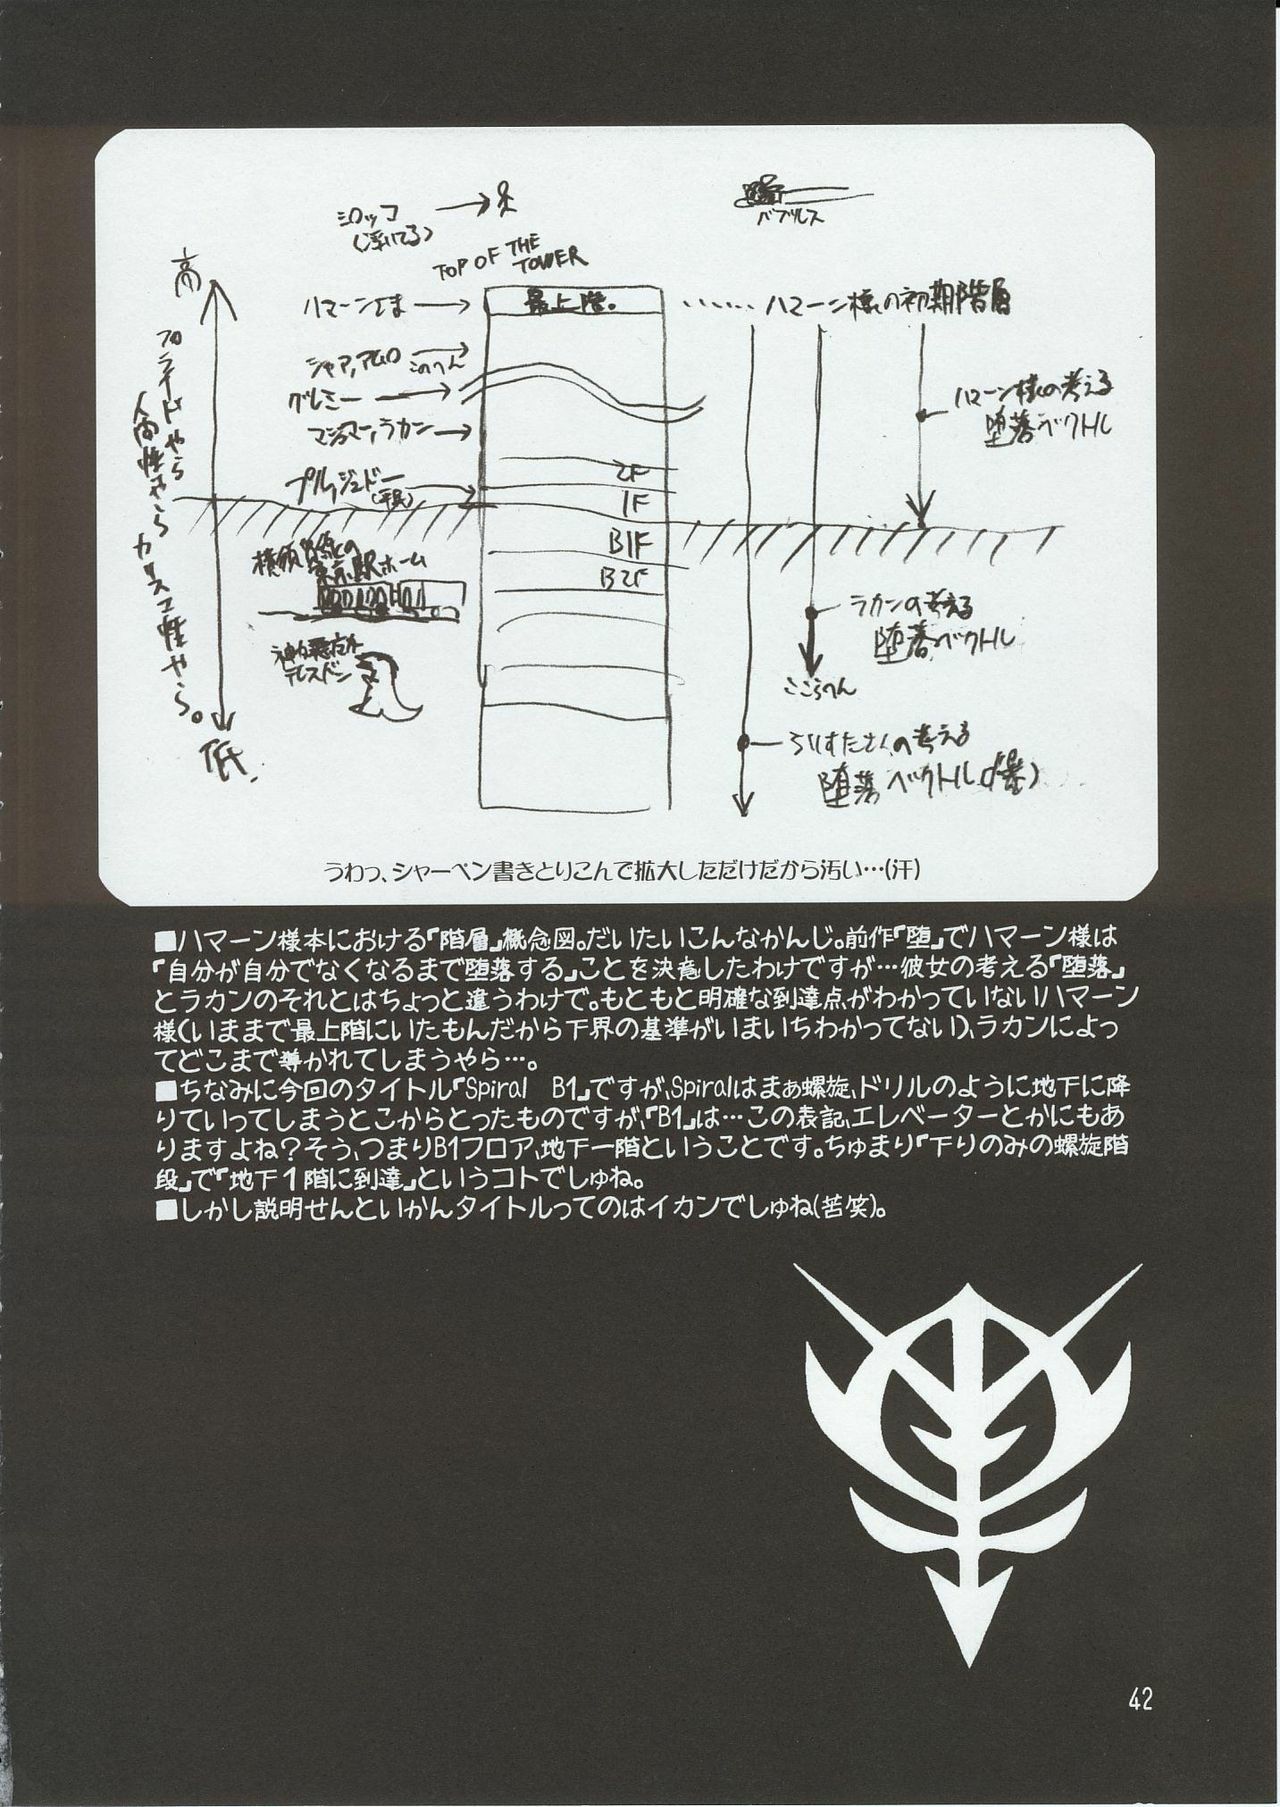 シロッコ
(浮いてる)
TOP OF THE
TOWER
バブルス
高
ハマーンさま
最上階。
ハマーン様の初期階層
シャア,アムロ
このへん
グレミー
マシュマー,ラカン
プル,ジュドー
(平民)
プライドやら
人間性やらカリスマ性やら。
低
2F
1F
B1F
B2F
横須賀線の
東京駅ホーム
テレスドン
ハマーン様の考える
堕落ベクトル
ラカンの考える
堕落ベクトル
ここらへん
の考える
堕落ベクトル
うわっ、シャーペン書きとりこんで拡大しただけだから汚い…(汗)
■ハマーン様本における「階層」概念図。だいたいこんなかんじ。前作「堕」でハマーン様は
「自分が自分でなくなるまで堕落する」ことを決意したわけですが…彼女の考える「堕落」
とラカンのそれとはちょっと違うわけで。もともと明確な到達点がわかっていないハマーン
様(いままで最上階にいたもんだから下界の基準がいまいちわかってない)、ラカンによっ
てどこまで導かれてしまうやら…。
■ちなみに今回のタイトル「Spiral B1」ですが、Spiralはまぁ螺旋、ドリルのように地下に降
りていってしまうとこからとったものですが、「B1」は…この表記、エレベーターとかにもあ
りますよね?そう、つまりB1フロア、地下一階ということです。ちゅまり「下りのみの螺旋階
段」で「地下1階に到達」というコトでしゅね。
■しかし説明せんといかんタイトルってのはイカンでしゅね(苦笑)。
42